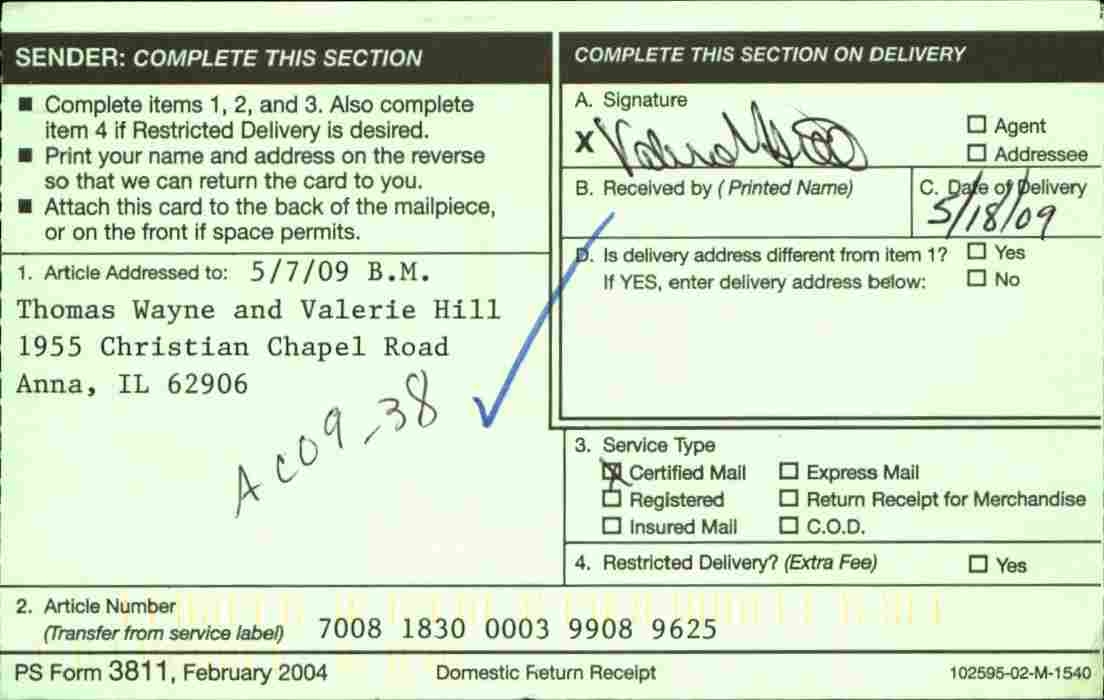 SENDER: COMPLETE THIS SECTION
■ Complete items 1, 2, and 3. Also complete
item 4 if Restricted Delivery is desired.
■ Print your name and address on the reverse
so that we can return the card to you.
■ Attach this card to the back of the mailpiece,
or on the front if space permits.
1. Article Addressed to: 5/7/09 B.M.
Thomas Wayne and Valerie Hill
1955 Christian Chapel Road
Anna, IL 62906
AC09-38
COMPLETE THIS SECTION ON DELIVERY
A. Signature
X Valerie Hill
☐ Agent
☐ Addressee
B. Received by (Printed Name)
C. Date of Delivery
5/18/09
D. Is delivery address different from item 1? ☐ Yes
If YES, enter delivery address below: ☐ No
3. Service Type
☒ Certified Mail ☐ Express Mail
☐ Registered ☐ Return Receipt for Merchandise
☐ Insured Mail ☐ C.O.D.
4. Restricted Delivery? (Extra Fee) ☐ Yes
2. Article Number
(Transfer from service label) 7008 1830 0003 9908 9625
PS Form 3811, February 2004 Domestic Return Receipt 102595-02-M-1540